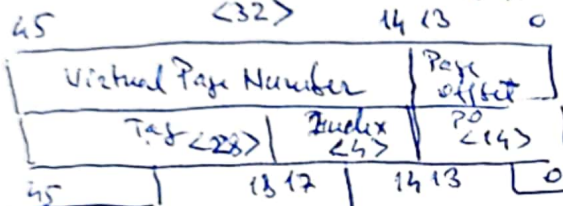 45 <32> 14 13 0
Virtual Page Number Page offset
Tag <28> Index <4> PO <14>
45 18 17 14 13 0